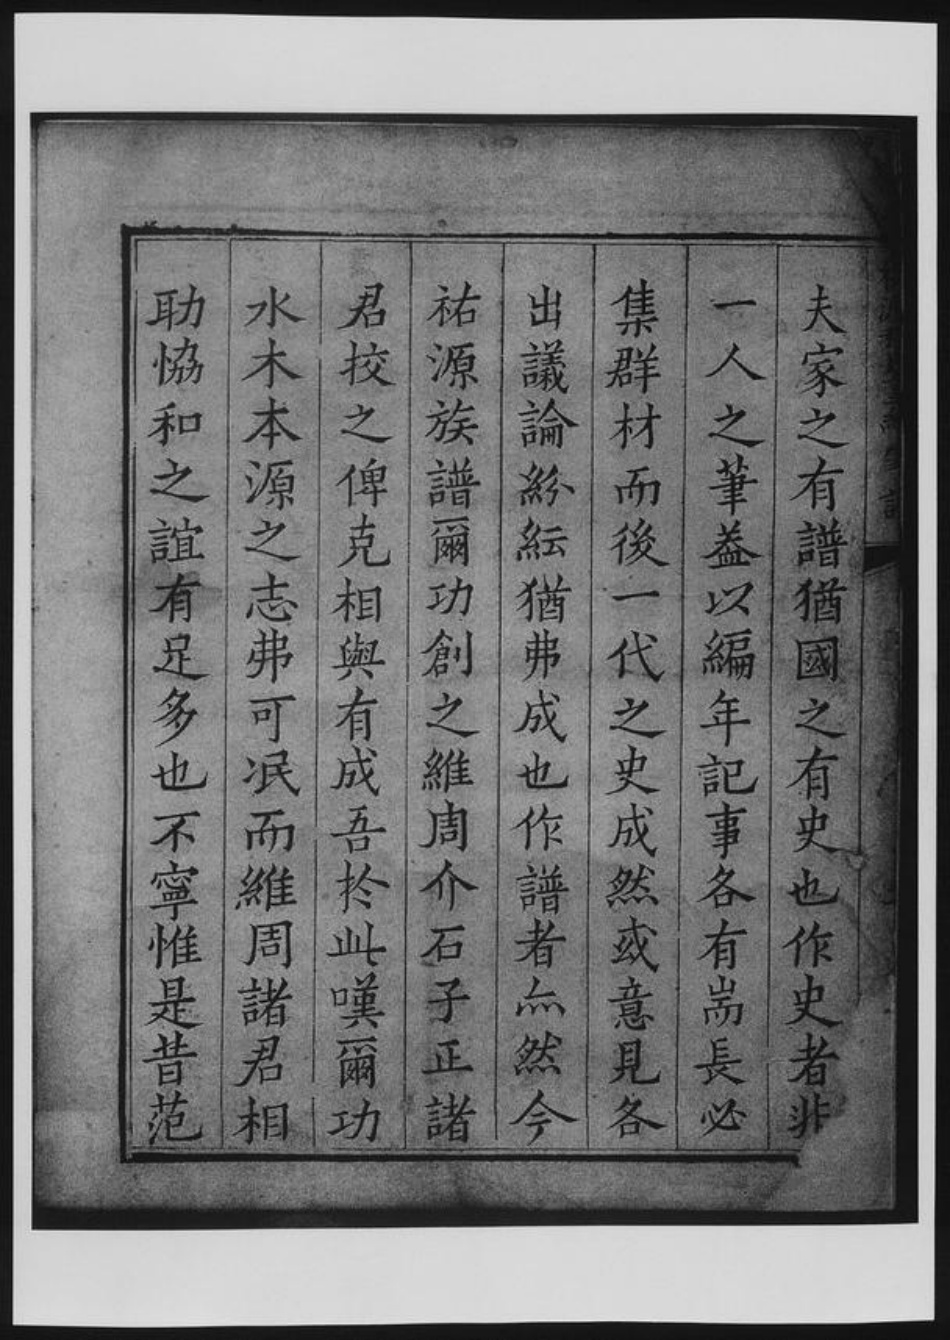 夫家之有譜猶國之有史也作史者非
一人之筆葢以編年記事各有耑長必
集群材而後一代之史成然或意見各
出議論紛紜猶弗成也作譜者亦然今
祐源族譜爾功創之維周介石子正諸
君挍之俾克相與有成吾於此嘆爾功
水木本源之志弗可泯而維周諸君相
助恊和之誼有足多也不寧惟是昔范